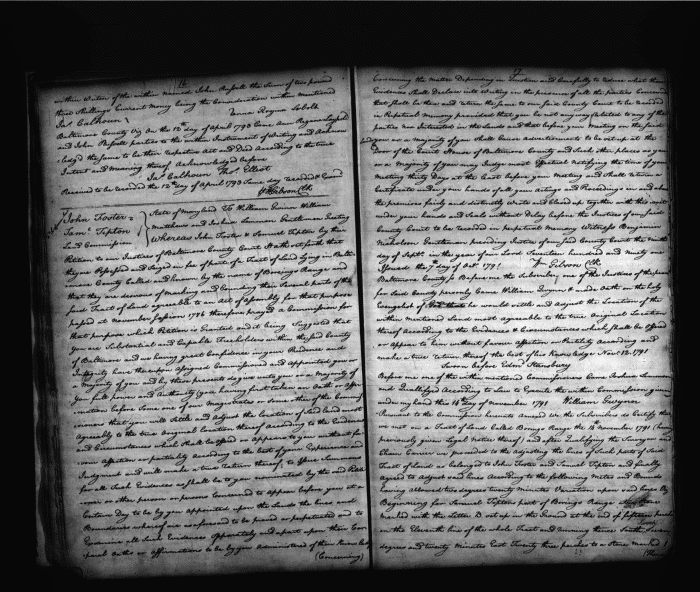 16
within Writen of the within named John Russell the Sum of two pound
three Shillings Current Money being the Consideration within Mentioned
Jas Calhoun
Baltimore County Vizt On the 12th day of April 1793 Came Ann Rogers
and John Russell parties to the within Instrument of Writing and Acknow
ledged the same to be their respective Act and Deed according to the true
Intent and Meaning thereof Acknowledged before
Jas Calhoun Thos Elliot
Received to be recorded the 12th day of April 1793 Same day recorded & Exmd
Wm Gibson Clk
John Foster &
Saml Tipton
Land Commission
State of Maryland To William Gwinn William
Matthews and Joshua Gentlemen Greeting
Whereas John Foster & Samuel Tipton by their
Petition to our Justices of Baltimore County Court Hath set forth that
they are Possessed and Seized in fee of part of a Tract of Land lying in Balti
more County Called and known by the name of Borings Range and
that they are desirous of Marking and Bounding their Several parts of the
said Tract of Land agreeable to an Act of Assembly for that purpose
passed at November Session 1786 therefore prayed a Commission for
that purpose which Petition is Granted and it being Suggested that
You are Substantial and Capable Freeholders within the said County
of Baltimore and we having great Confidence in your Prudence and
Integrity have thereupon assigned Commissioned and Appointed you or
a Majority of you and by these presents do give unto you or a Majority of
You full power and Authority (you having first taken an Oath or Affir
mation before Some one of our Magistrates or Justices of the
County that you will Settle and Adjust the location of said Land most
agreeably to the true Original location thereof according to the Evidence
and Circumstances which shall be offered or appears to you without fa
vour affection or partiality according to the best of your Experience and
Judgment and will make a true return thereof) to Issue Summons
for all Such Evidences as shall be to you nominated by the said Peti
tioners or other person or persons Concerned to appear before you at a
Certain Day to be by you appointed upon the Lands the lines and
Boundaries whereof are supposed to be proved or perpetuated and to
Examine all Such Evidences Apart upon their Cor
poral Oaths or affirmations to be by you Administered of their Knowledge
(Concerning)
17
Concerning the matter Depending in Question and Carefully to reduce what the
Evidence Shall Declare into Writing in the presence of all the parties Concerned
that shall be there and return the same to our said County Court to be recorded
in Perpetual Memory provided that you be not any ways related to any of the
parties nor Interested in the Lands and that before your Meeting on the said
Land you or a Majority of you Shall Cause advertisements to be set up at the
door of the Court House of Baltimore County and Such other places as you
or a Majority of you may Judge most effectual notifying the time of your
Meeting thirty Days at the least before your Meeting and Shall return a
Certificate under your hands of all your actings and Proceedings in and about
the premises fairly and distinctly Wrote and Closed up together with this writ
under your hands and Seals without Delay before the Justices of our said
County Court to be recorded in perpetual Memory Witness Benjamin
Nicholson Gentleman presiding Justice of our said County Court the
day of Septr in the year of our Lord Seventeen hundred and ninety one
Issued the 7 day of Octr 1791 Wm Gibson Clk
Baltimore County Ss Before me the Subscriber one of the Justices of the peace
for said County personaly Came William Gwynn & made Oath on the holy
Evangelist of that he would settle and Adjust the Location of the
within Mentioned Land most agreeable to the true Original Location
thereof according to the Evidences & Circumstances which shall be offered
or appear to him without favour affection or Partiality According and
make a true return thereof the best of his Knowledge Novr 12 1791
Sworn before Eden Stansbury
Before me one of the within mentioned Commissioners Came Joshua
and Qualifyed According to Law to Execute the within Commission given
under my hand this 14th day of November 1791 William Gwynn
Pursuant to the Commission hereunto Annexed We the Subscribers do Certify that
we met on a Tract of Land Called Borings Range the 14th November 1791 (having
previously given Legal Notice thereof) and after Qualifying the Surveyor and
Chain Carrier we proceeded to the Adjusting the lines of Such parts of Said
Tract of Land as belonged to John Foster and Samuel Tipton and finally
Agreed to Adjust said lines According to the following Metes and Bounds
having allowed two degrees twenty minutes Variation upon said lines Viz
Beginning for Samuel Tiptons part of Borings Range at a Stone
marked with the Letter B set up in the Ground at the end of fifteen perches
on the Eleventh line of the whole Tract and running thence South Seven
degrees and twenty Minutes East Twenty three perches to a Stone marked